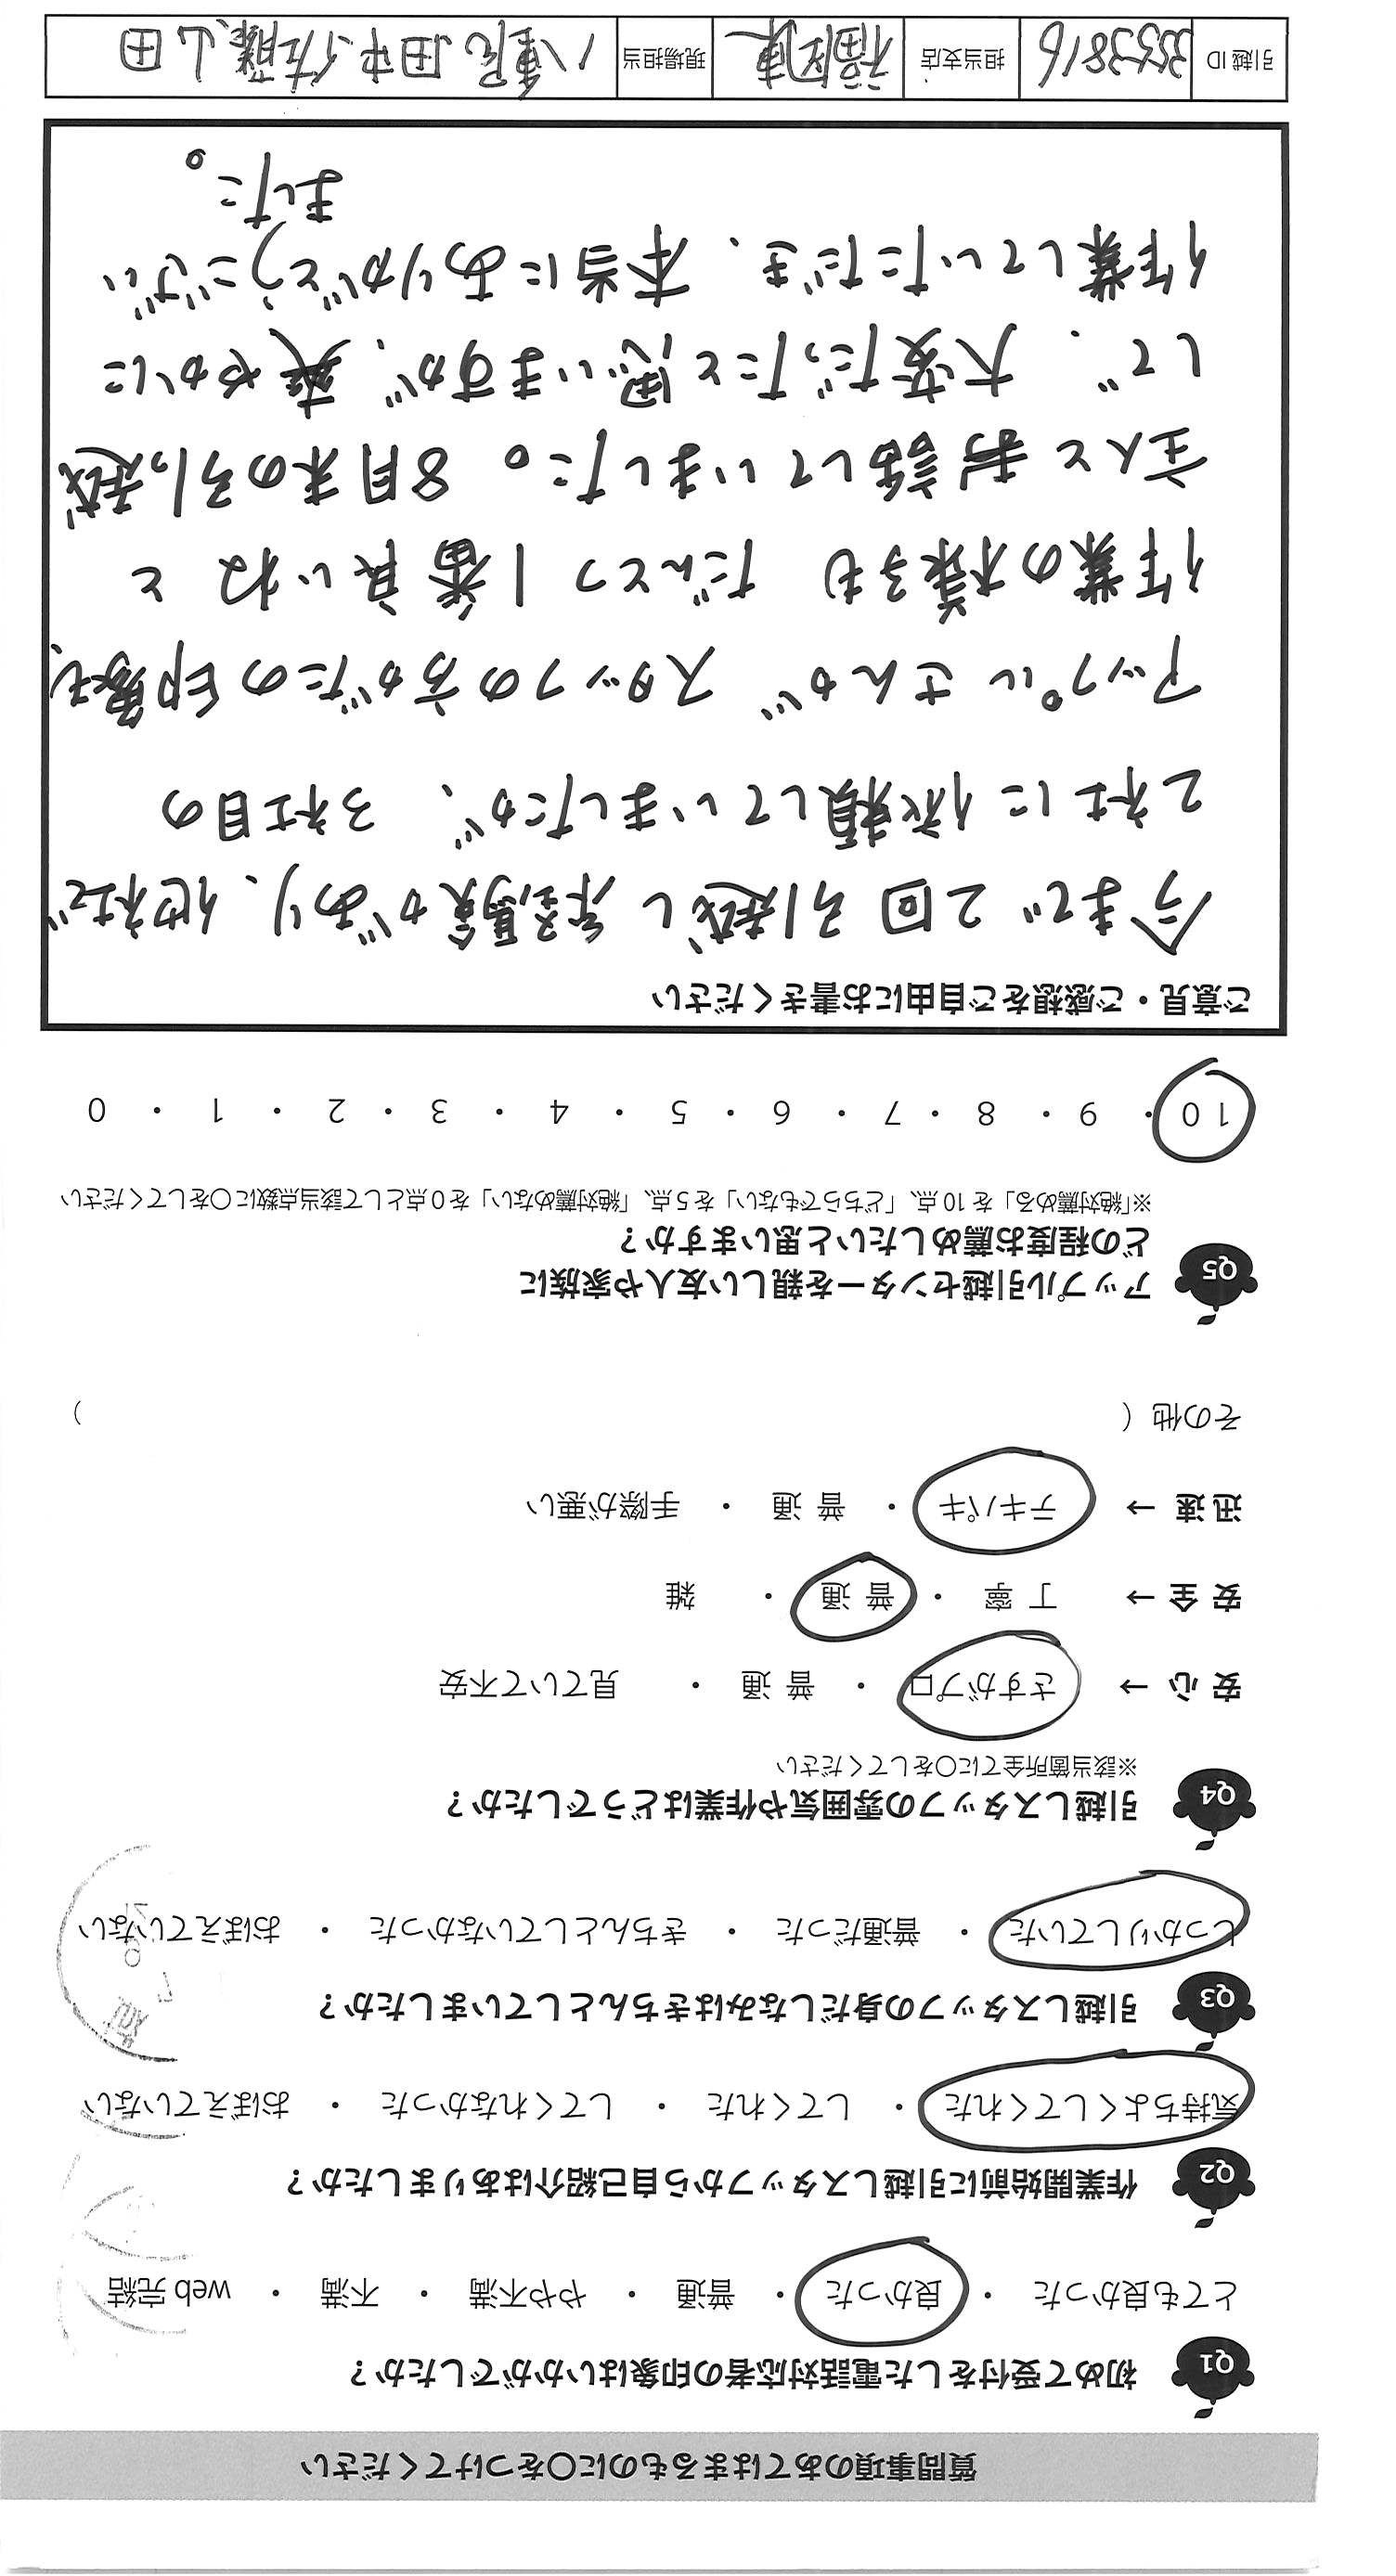 質問事項のあてはまるものに○をつけてください
Q1 初めて受付をした電話対応者の印象はいかがでしたか？
とても良かった ・ 良かった ・ 普通 ・ やや不満 ・ 不満 ・ web 完結
Q2 作業開始前に引越しスタッフから自己紹介はありましたか？
気持ちよくしてくれた ・ してくれた ・ してくれなかった ・ おぼえていない
Q3 引越しスタッフの身だしなみはきちんとしていましたか？
しっかりしていた ・ 普通だった ・ きちんとしていなかった ・ おぼえていない
Q4 引越しスタッフの雰囲気や作業はどうでしたか？
※該当箇所全てに○をしてください
安 心 → さすがプロ ・ 普 通 ・ 見ていて不安
安 全 → 丁 寧 ・ 普 通 ・ 雑
迅 速 → テキパキ ・ 普 通 ・ 手際が悪い
その他（ ）
Q5 アップル引越センターを親しい友人や家族に
どの程度お薦めしたいと思いますか？
※「絶対薦める」を 10 点、「どちらでもない」を 5 点、「絶対薦めない」を 0 点として該当点数に○をしてください
10 ・ 9 ・ 8 ・ 7 ・ 6 ・ 5 ・ 4 ・ 3 ・ 2 ・ 1 ・ 0
ご意見・ご感想をご自由にお書きください
今まで 2回 引越し 経験があり、他社で
2社に依頼していましたが、 3社目の
アップルさんが スタッフの方がたの印象も、
作業の様子も だんとつ 1番 良いね と
主人と お話していました。 8月末の引っ越
しで、 大変だったと思いますが、爽やかに
作業していただき、 本当にありがとうござい
ました。
引越 ID 3553816 担当支店 福岡東 現場担当 八重尾 田中 佐藤 山田